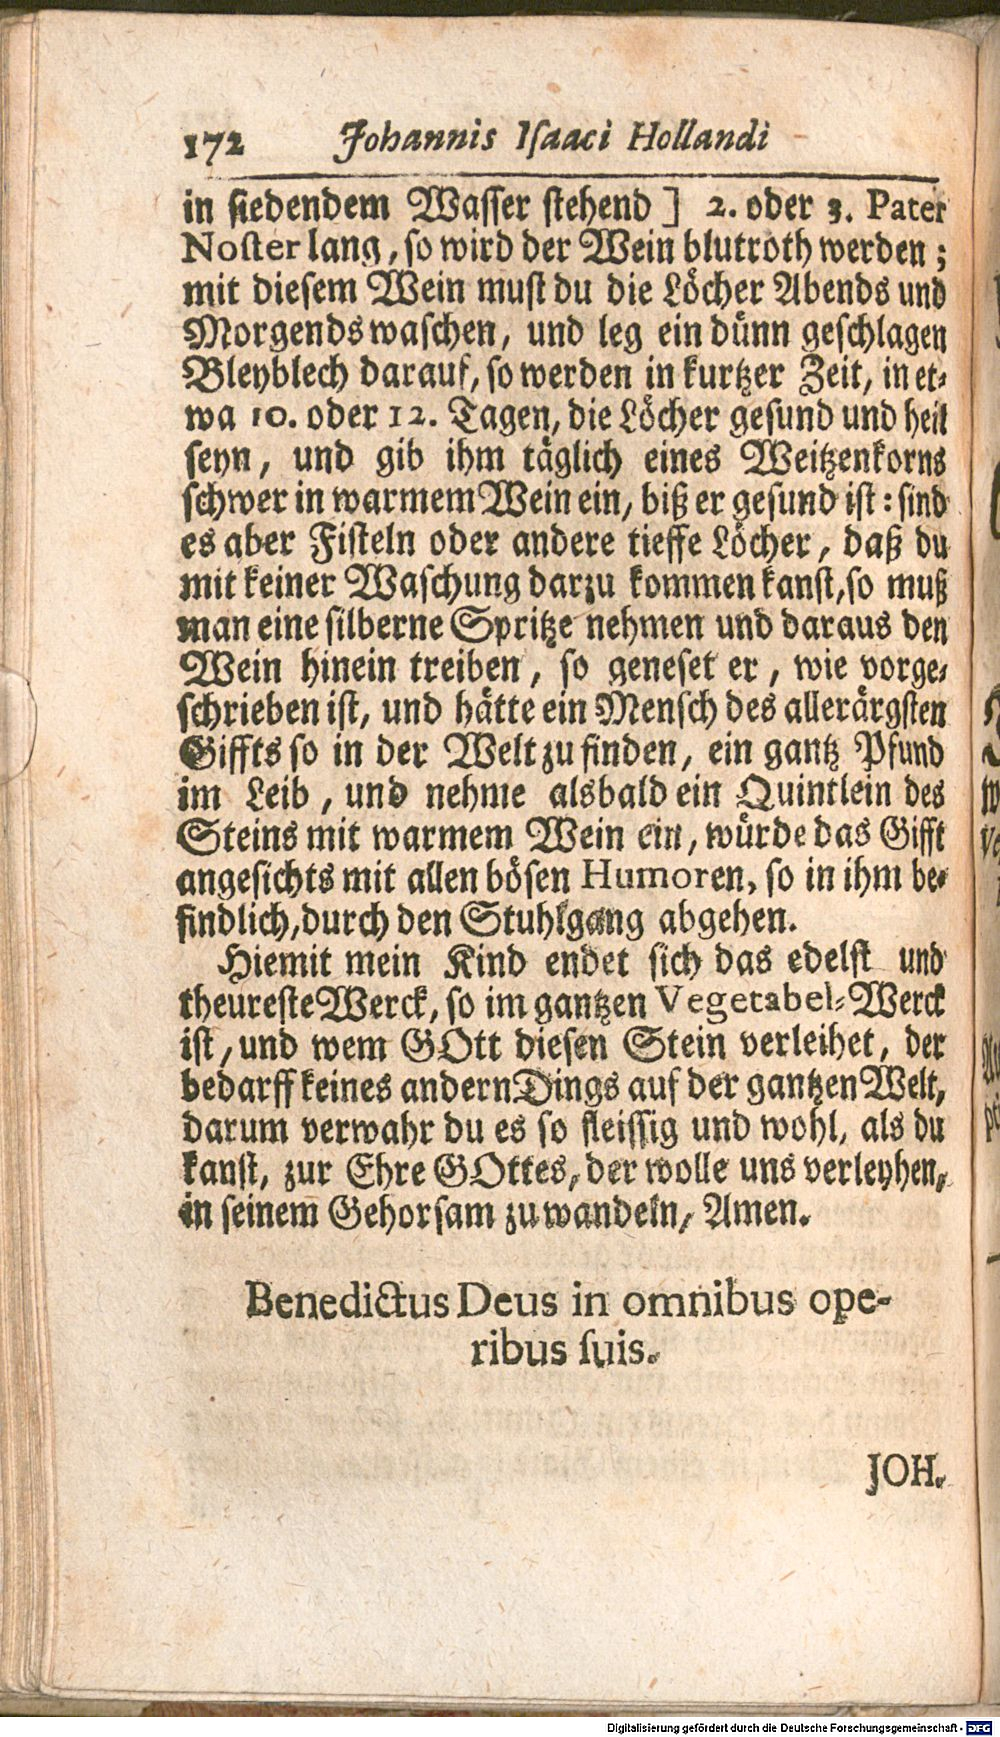 172 Johannis Isaaci Hollandi
in siedendem Wasser stehend] 2. oder 3. Pater
Noster lang, so wird der Wein blutroth werden;
mit diesem Wein must du die Löcher Abends und
Morgends waschen, und leg ein dünn geschlagen
Bleyblech darauf, so werden in kurtzer Zeit, in et-
wa 10. oder 12. Tagen, die Löcher gesund und heil
seyn, und gib ihm täglich eines Weitzenkorns
schwer in warmem Wein ein, biß er gesund ist: sind
es aber Fisteln oder andere tieffe Löcher, daß du
mit keiner Waschung darzu kommen kanst, so muß
man eine silberne Spritze nehmen und daraus den
Wein hinein treiben, so geneset er, wie vorge-
schrieben ist, und hätte ein Mensch des allerärgsten
Giffts so in der Welt zu finden, ein gantz Pfund
im Leib, und nehme alsbald ein Quintlein des
Steins mit warmem Wein ein, würde das Gifft
angesichts mit allen bösen Humoren, so in ihm be-
findlich, durch den Stuhlgang abgehen.
Hiemit mein Kind endet sich das edelst und
theureste Werck, so im gantzen Vegetabel-Werck
ist, und wem GOtt diesen Stein verleihet, der
bedarff keines andern Dings auf der gantzen Welt,
darum verwahr du es so fleissig und wohl, als du
kanst, zur Ehre GOttes, der wolle uns verleyhen,
in seinem Gehorsam zu wandeln, Amen.
Benedictus Deus in omnibus ope-
ribus suis.
JOH.
Digitalisierung gefördert durch die Deutsche Forschungsgemeinschaft - DFG